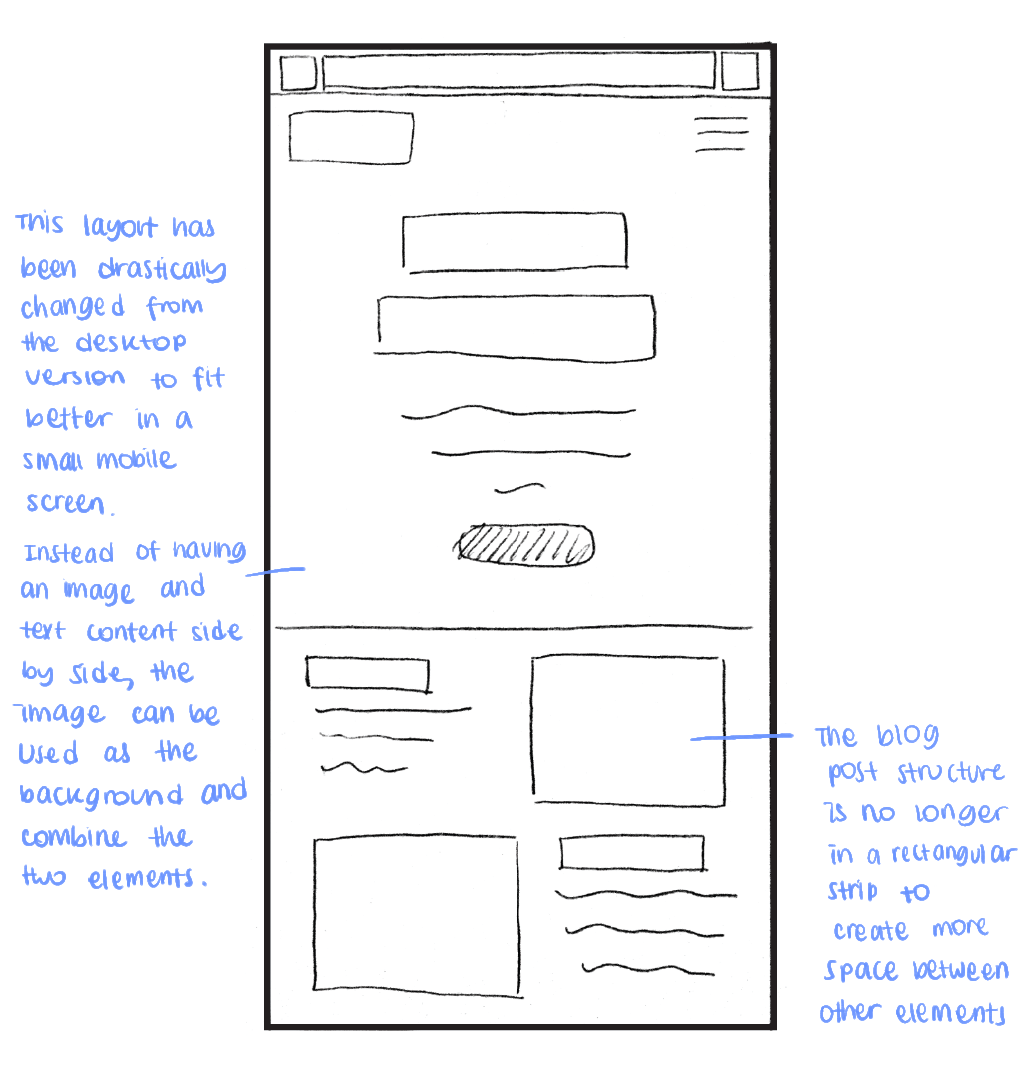 This layout has
been drastically
changed from
the desktop
version to fit
better in a
small mobile
screen.
Instead of having
an image and
text content side
by side, the
image can be
used as the
background and
combine the
two elements.
The blog
post structure
is no longer
in a rectangular
strip to
create more
space between
other elements